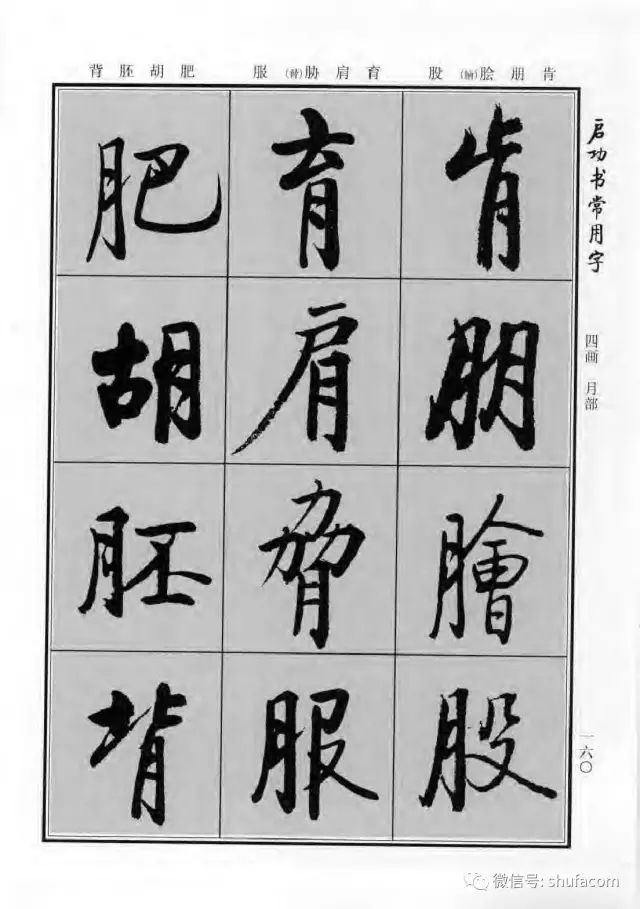 启功书常用字
四画 月部
一六〇
肯朋脍(膾)股
育肩胁(脅)服
肥胡胚背
肯朋膾股
育肩脅服
肥胡胚背
微信号: shufacom